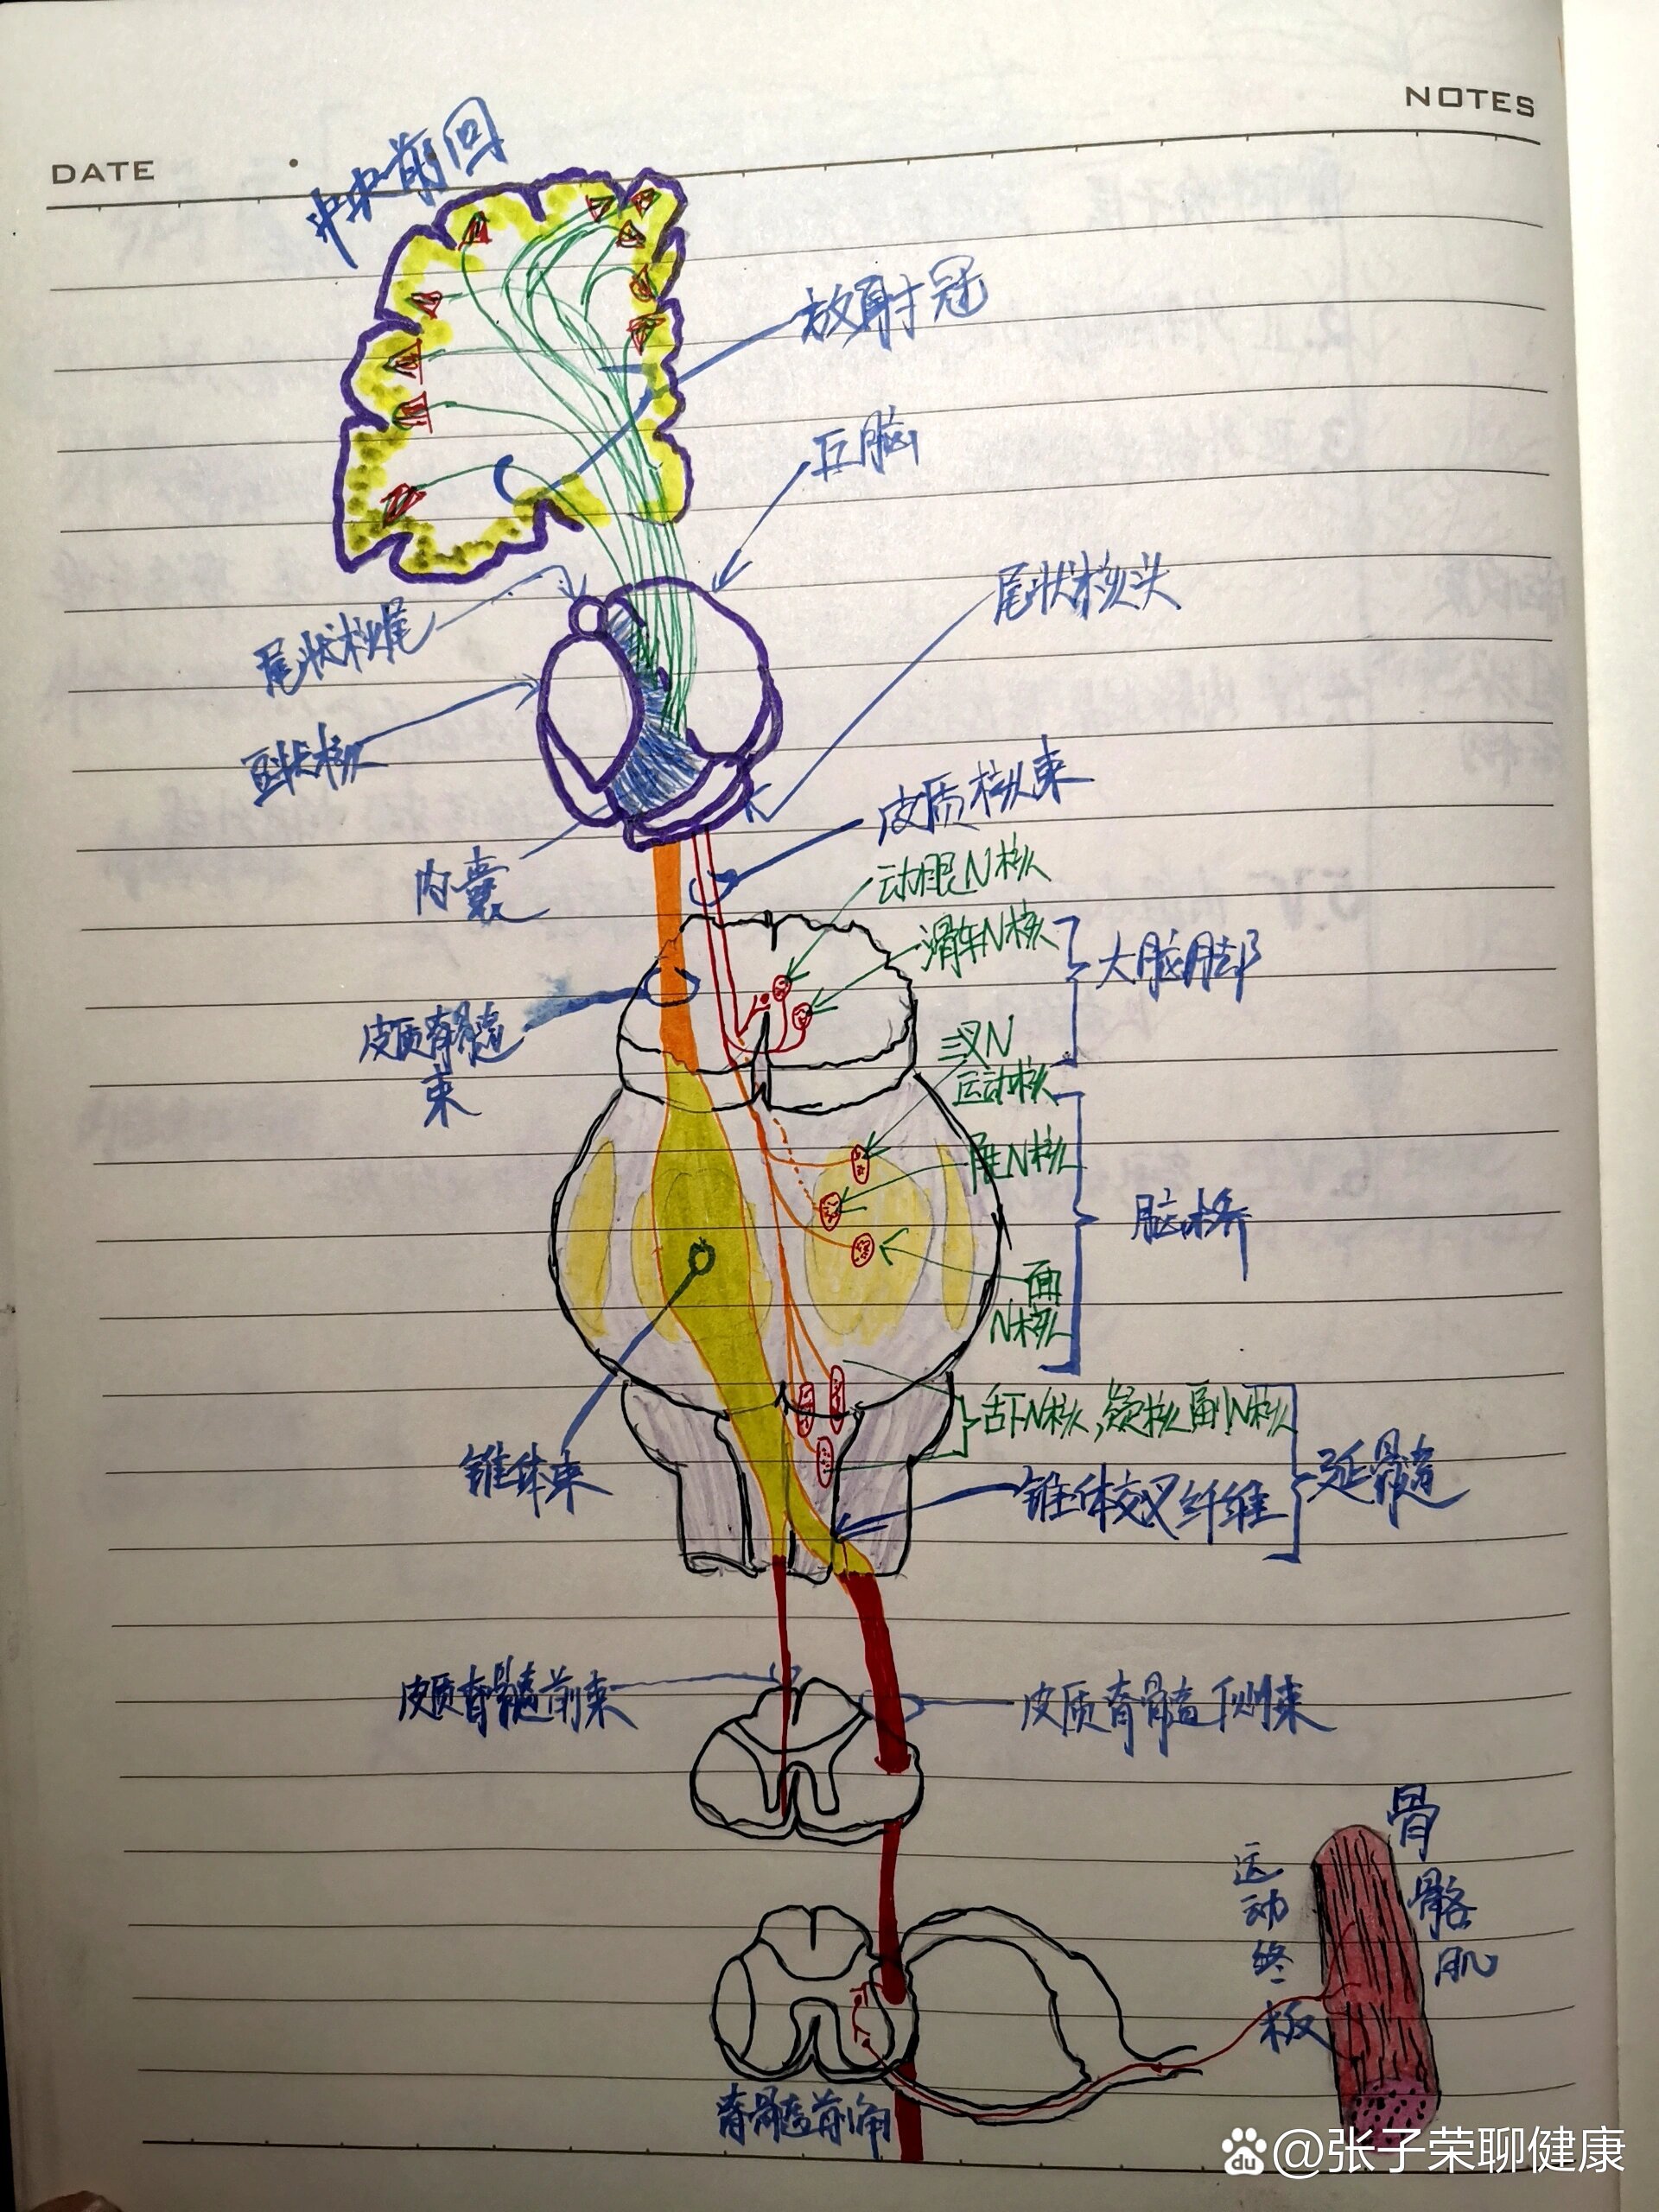 NOTES
DATE
中央前回
放射冠
丘脑
尾状核头
尾状核尾
豆状核
皮质核束
内囊
动眼N核
滑车N核
大脑脚
皮质脊髓
束
三叉N
运动核
展N核
脑桥
面
N核
舌下N核,疑核副N核
锥体束
锥体交叉纤维
延髓
皮质脊髓前束
皮质脊髓侧束
骨骼肌
运动终板
脊髓前角
du @张子荣聊健康